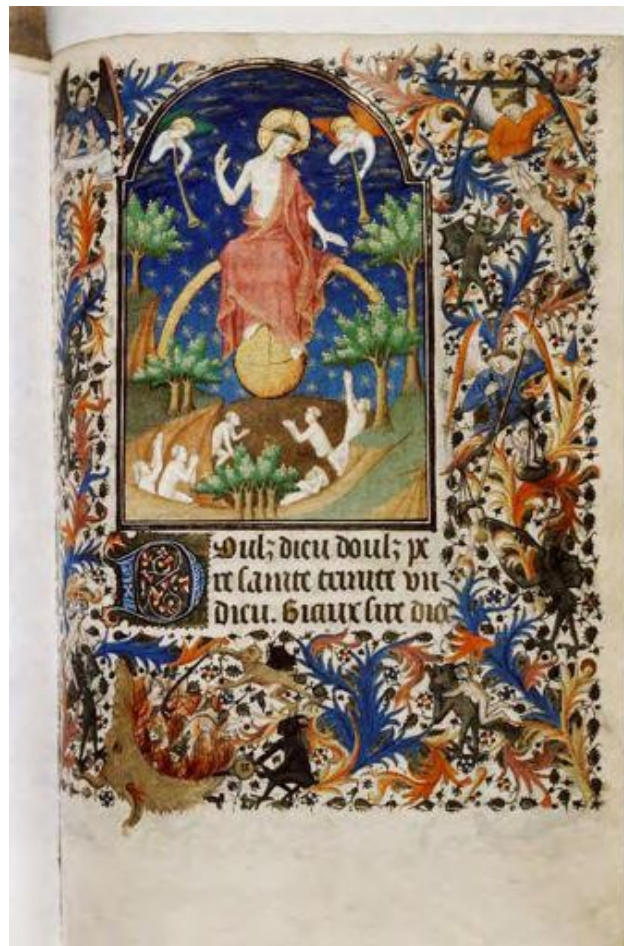 Doulz dieu doulz pe
re sainte trinite vn
dieu. Biaux sire die